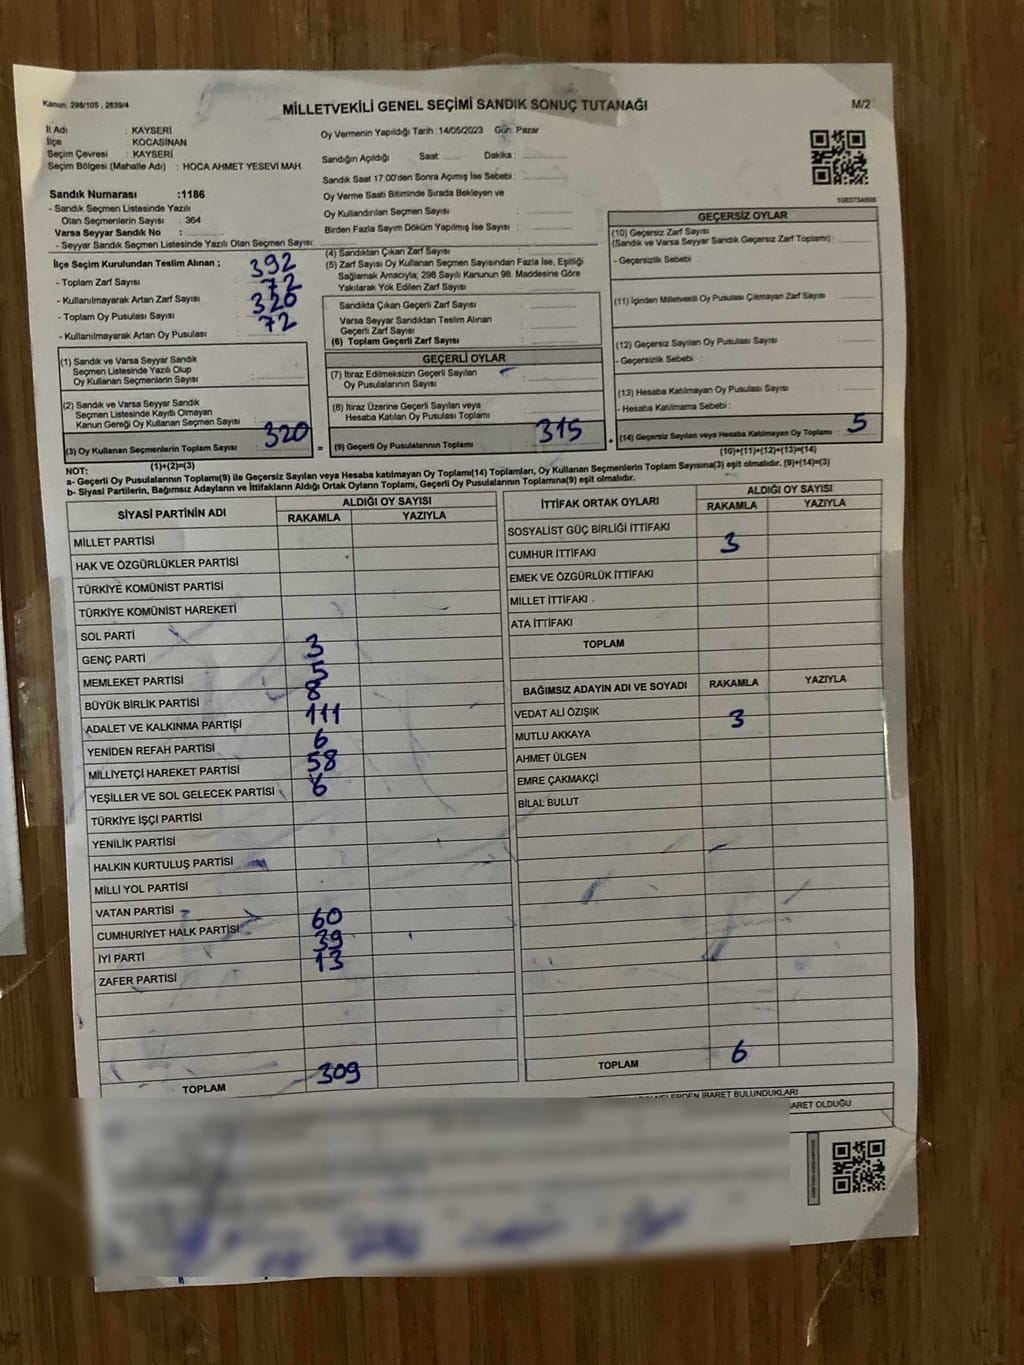 Kanun: 298/105 , 2839/4
MİLLETVEKİLİ GENEL SEÇİMİ SANDIK SONUÇ TUTANAĞI
M/2
İl Adı : KAYSERİ
İlçe : KOCASİNAN
Seçim Çevresi : KAYSERİ
Seçim Bölgesi (Mahalle Adı) : HOCA AHMET YESEVİ MAH.
Sandık Numarası :1186
- Sandık Seçmen Listesinde Yazılı
Olan Seçmenlerin Sayısı : 364
Varsa Seyyar Sandık No :
- Seyyar Seçmen Listesinde Yazılı Olan Seçmen Sayısı:
İlçe Seçim Kurulundan Teslim Alınan ;
- Toplam Zarf Sayısı : 392
- Kullanılmayarak Artan Zarf Sayısı : 72
- Toplam Oy Pusulası Sayısı : 320
- Kullanılmayarak Artan Oy Pusulası : 72
(1) Sandık ve Varsa Seyyar Sandık
Seçmen Listesinde Yazılı Olup
Oy Kullanan Seçmenlerin Sayısı :
(2) Sandık ve Varsa Seyyar Sandık
Seçmen Listesinde Kayıtlı Olmayan
Kanun Gereği Oy Kullanan Seçmen Sayısı :
(3) Oy Kullanan Seçmenlerin Toplam Sayısı : 320
(1)+(2)=(3)
Oy Vermenin Yapıldığı Tarih :14/05/2023 Gün: Pazar
Sandığın Açıldığı Saat: Dakika :
Sandık Saat 17:00'den Sonra Açımış İse Sebebi :
Oy Verme Saati Bitiminde Sırada Bekleyen ve
Oy Kullandırılan Seçmen Sayısı :
Birden Fazla Sayım Döküm Yapılmış İse Sayısı :
(4) Sandıktan Çıkan Zarf Sayısı :
(5) Zarf Sayısı Oy Kullanan Seçmen Sayısından Fazla İse, Eşitliği
Sağlamak Amacıyla; 298 Sayılı Kanunun 98. Maddesine Göre
Yakılarak Yok Edilen Zarf Sayısı :
Sandıkta Çıkan Geçerli Zarf Sayısı :
Varsa Seyyar Sandıktan Teslim Alınan
Geçerli Zarf Sayısı :
(6) Toplam Geçerli Zarf Sayısı :
GEÇERLİ OYLAR
(7) İtiraz Edilmeksizin Geçerli Sayılan
Oy Pusulalarının Sayısı :
(8) İtiraz Üzerine Geçerli Sayılan veya
Hesaba Katılan Oy Pusulası Toplamı :
= (9) Geçerli Oy Pusulalarının Toplamı : 315
1063734808
GEÇERSİZ OYLAR
(10) Geçersiz Zarf Sayısı
(Sandık ve Varsa Seyyar Sandık Geçersiz Zarf Toplamı) :
- Geçersizlik Sebebi :
(11) İçinden Milletvekili Oy Pusulası Çıkmayan Zarf Sayısı :
(12) Geçersiz Sayılan Oy Pusulası Sayısı :
- Geçersizlik Sebebi :
(13) Hesaba Katılmayan Oy Pusulası Sayısı :
- Hesaba Katılmama Sebebi :
+ (14) Geçersiz Sayılan veya Hesaba Katılmayan Oy Toplamı : 5
(10)+(11)+(12)+(13)=(14)
NOT:
a- Geçerli Oy Pusulalarının Toplamı(9) ile Geçersiz Sayılan veya Hesaba katılmayan Oy Toplamı(14) Toplamları, Oy Kullanan Seçmenlerin Toplam Sayısına(3) eşit olmalıdır. (9)+(14)=(3)
b- Siyasi Partilerin, Bağımsız Adayların ve İttifakların Aldığı Ortak Oyların Toplamı, Geçerli Oy Pusulalarının Toplamına(9) eşit olmalıdır.
SİYASİ PARTİNİN ADI
ALDIĞI OY SAYISI
RAKAMLA YAZIYLA
MİLLET PARTİSİ
HAK VE ÖZGÜRLÜKLER PARTİSİ
TÜRKİYE KOMÜNİST PARTİSİ
TÜRKİYE KOMÜNİST HAREKETİ
SOL PARTİ
GENÇ PARTİ 3
MEMLEKET PARTİSİ 5
BÜYÜK BİRLİK PARTİSİ 8
ADALET VE KALKINMA PARTİSİ 111
YENİDEN REFAH PARTİSİ 6
MİLLİYETÇİ HAREKET PARTİSİ 58
YEŞİLLER VE SOL GELECEK PARTİSİ 6
TÜRKİYE İŞÇİ PARTİSİ
YENİLİK PARTİSİ
HALKIN KURTULUŞ PARTİSİ
MİLLİ YOL PARTİSİ
VATAN PARTİSİ
CUMHURİYET HALK PARTİSİ 60
İYİ PARTİ 39
ZAFER PARTİSİ 13
TOPLAM 309
İTTİFAK ORTAK OYLARI
ALDIĞI OY SAYISI
RAKAMLA YAZIYLA
SOSYALİST GÜÇ BİRLİĞİ İTTİFAKI
CUMHUR İTTİFAKI 3
EMEK VE ÖZGÜRLÜK İTTİFAKI
MİLLET İTTİFAKI
ATA İTTİFAKI
TOPLAM
BAĞIMSIZ ADAYIN ADI VE SOYADI RAKAMLA YAZIYLA
VEDAT ALİ ÖZIŞIK 3
MUTLU AKKAYA
AHMET ÜLGEN
EMRE ÇAKMAKÇİ
BİLAL BULUT
TOPLAM 6
İBARET BULUNDUKLARI
OLDUĞU